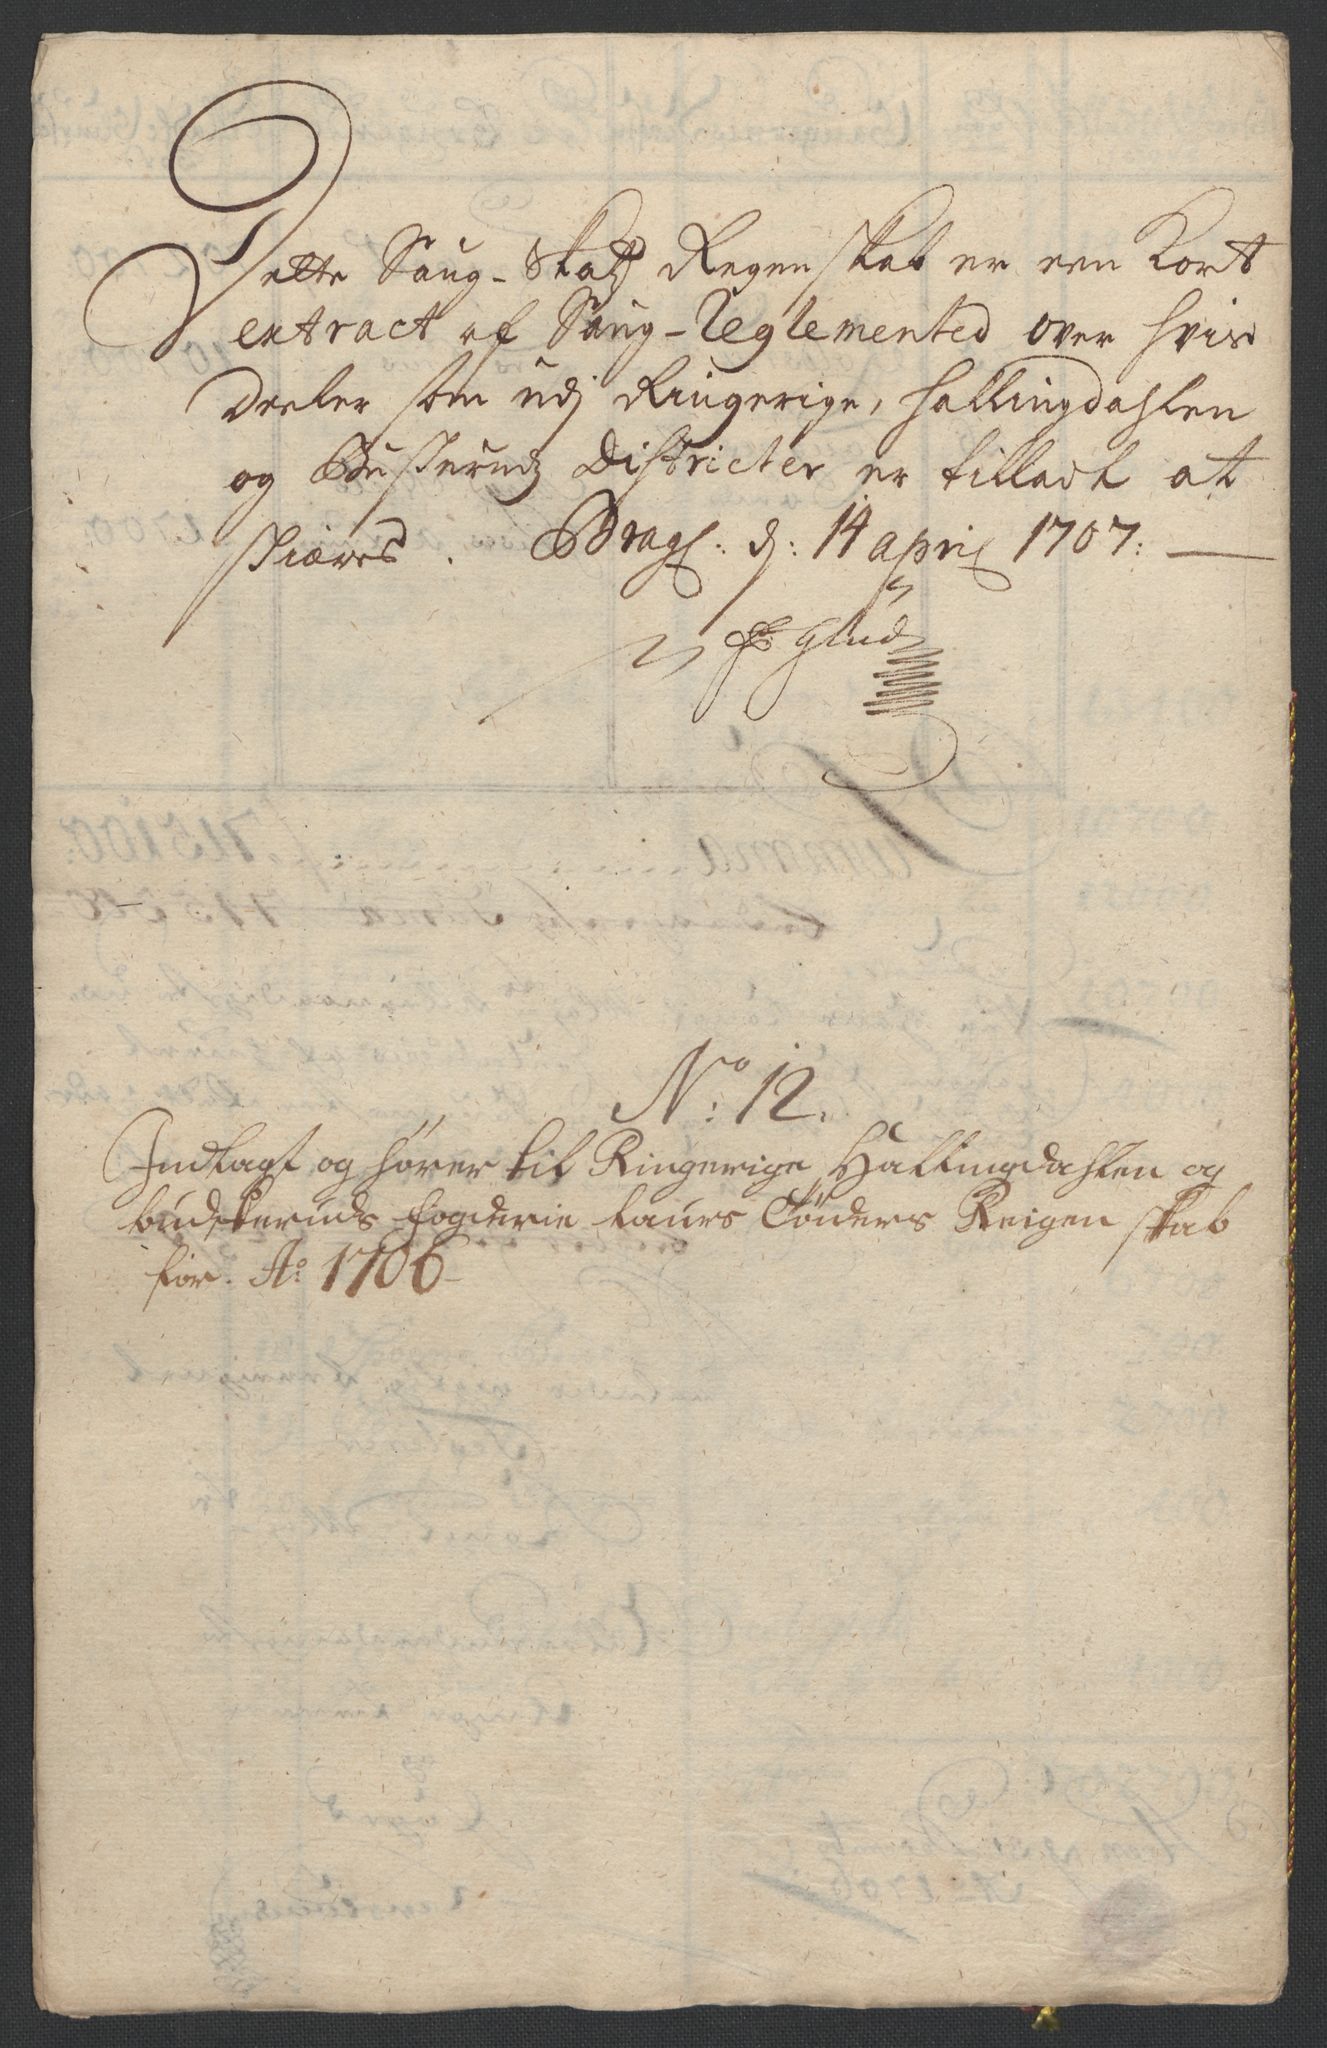 Dette Saug-Skatz Regenskab er een Kort
extract af Saug-Reglemented over hvis
Deeler som udj Ringerige, Hallingdahlen
og Buskeruds Districter er tilladt at
skiæres. Brags: d: 14 april 1707:
Glud
No: 12.
Indlagt og hører til Ringerige Hallingdahlen og
budskeruds fogderie Laurs Tønders Reigenskab
for. Ao: 1706